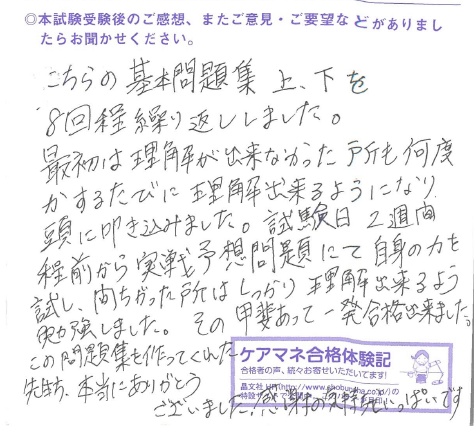 ◎本試験受験後のご感想、またご意見・ご要望などがありまし
たらお聞かせください。
こちらの基本問題集 上、下を
8回程繰り返ししました。
最初は理解が出来なかった所も何度
かするたびに理解出来るようになり
頭に叩き込みました。試験日2週間
程前から実戦予想問題にて自身の力を
試し、間ちがった所はしっかり理解出来るよう
勉強しました。その甲斐あって一発合格出来ました。
この問題集を作ってくれた
先生方、本当にありがとう
ございました!感謝の気持ちでいっぱいです
ケアマネ合格体験記
合格者の声、続々お寄せいただいてます!
晶文社HP(http://www.shobunsha.co.jp/)の